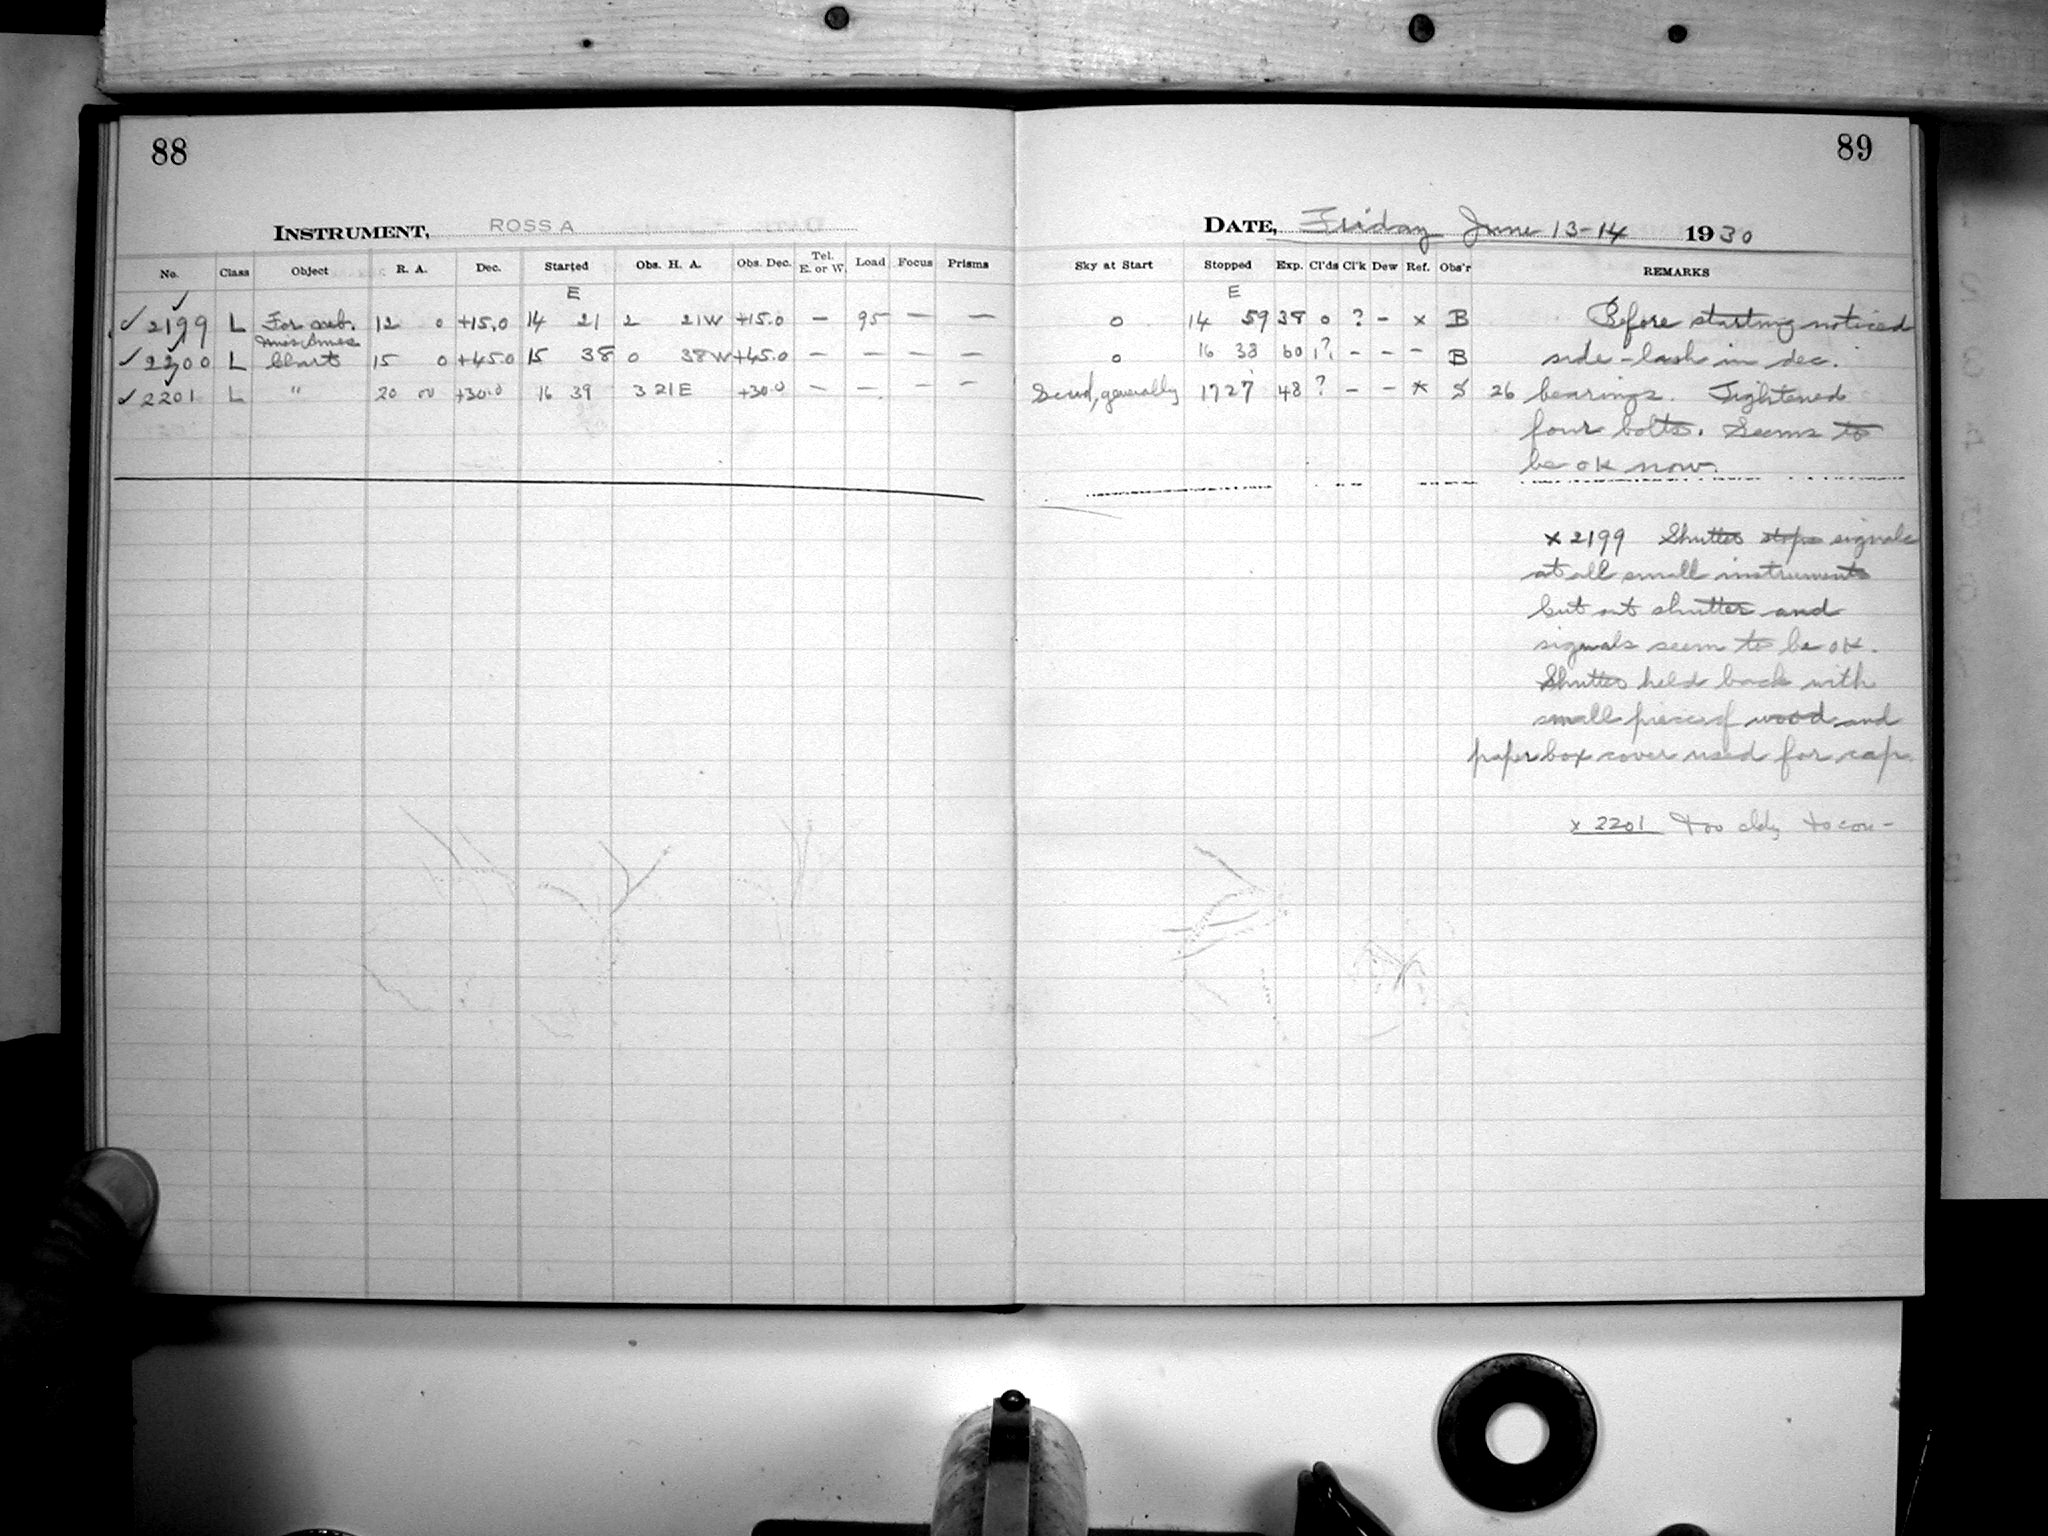 88
INSTRUMENT, ROSS A
No. Class Object R. A. Dec. Started Obs. H. A. Obs. Dec. Tel. E. or W. Load Focus Prisms
E
✓ 2199 L For neb. 12 0 +15.0 14 21 2 21W +15.0 — 95 — —
Miss Ames
✓ 2200 L Chart 15 0 +45.0 15 38 0 38W +45.0 — — — —
✓ 2201 L " 20 00 +30.0 16 39 3 21E +30.0 — — — —
89
DATE, Friday June 13-14 1930
Sky at Start Stopped Exp. Cl'ds Cl'k Dew Ref. Obs'r REMARKS
E
0 14 59 38 0 ? – x B Before starting noticed
0 16 38 60 1? – – – B side-lash in dec.
Scud, generally 17 27 48 ? – – x S 26 bearings. Tightened
four bolts. Seems to
be OK now.
x 2199 Shutter stops signals
at all small instruments
but shutter and
signals seem to be OK.
Shutter held back with
small piece of wood and
paper box cover used for cap.
x 2201 Too cldy to con-